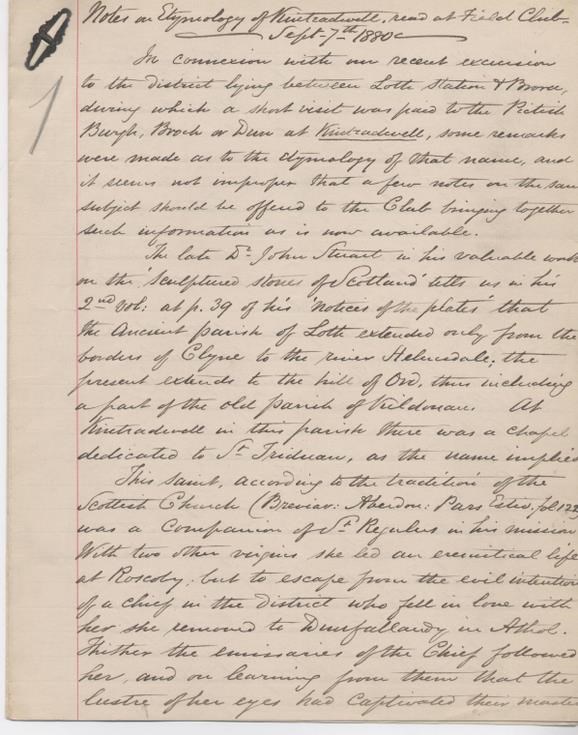 Notes on Etymology of Kintradwell, read at Field Club
Sept. 7th 1880
In connexion with our recent excursion
to the district lying between Loth Station & Brora,
during which a short visit was paid to the Pictish
Burgh, Broch or Dun at Kintradwell, some remarks
were made as to the etymology of that name, and
it seems not improper that a few notes on the same
subject should be offered to the Club bringing together
such information as is now available.
The late Dr. John Stuart in his valuable work
on the 'Sculptured stones of Scotland' tells us in his
2nd vol: at p. 39 of his 'notices of the plates' that
the Ancient parish of Loth extended only from the
borders of Clyne to the river Helmsdale; the
present extends to the hill of Ord, thus including
a part of the old parish of Kildonan. At
Kintradwell in this parish there was a chapel
dedicated to St Triduan, as the name implies
This Saint, according to the tradition of the
Scottish Church (Breviar: Aberdon: Pars Estiv, fol 122
was a Companion of St Regulus in his mission
With two other virgins she led an eremitical life
at Roscoby; but to escape from the evil intention
of a chief in the district who fell in love with
her she removed to Dunfallandy in Athol.
Thither the emissaries of the Chief followed
her, and on learning from them that the
lustre of her eyes had captivated their master